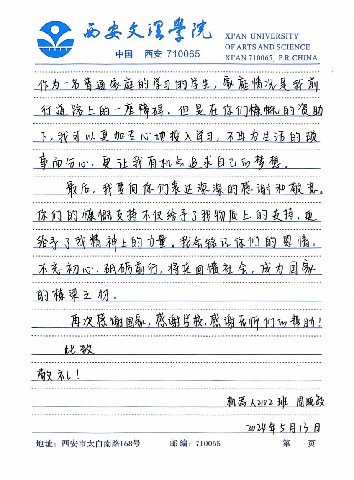 西安文理学院
中国 西安 710065
XI'AN UNIVERSITY
OF ARTS AND SCIENCE
XI'AN 710065, P.R.CHINA
作为一名普通家庭的学习的学生，家庭情况是我前
行道路上的一座障碍。但是在你们慷慨的资助
下，我可以更加专心地投入学习，不再为生活的琐
事而分心，更让我有机会追求自己的梦想。
最后，我要向你们表达深深的感谢和敬意。
你们的慷慨支持不仅给予了我物质上的支持，更
给予了我精神上的力量。我会铭记你们的恩情，
不忘初心，砥砺前行，将来回馈社会，成为国家
的栋梁之材。
再次感谢国家，感谢学校，感谢老师们的帮助！
此致
敬礼！
机器人2102班
2024年5月15日
地址：西安市太白南路168号 邮编：710065 第 页